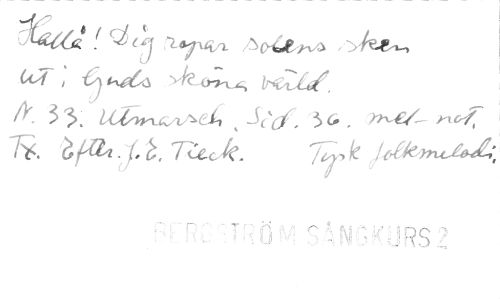 Hallå! Dig ropar solens sken
ut i Guds sköna värld.
N. 33. Utmarsch. Sid. 36. mel-not.
Tx. Efter. J. E. Tieck. Tysk folkmelodi.
BERGSTRÖM SÅNGKURS 2